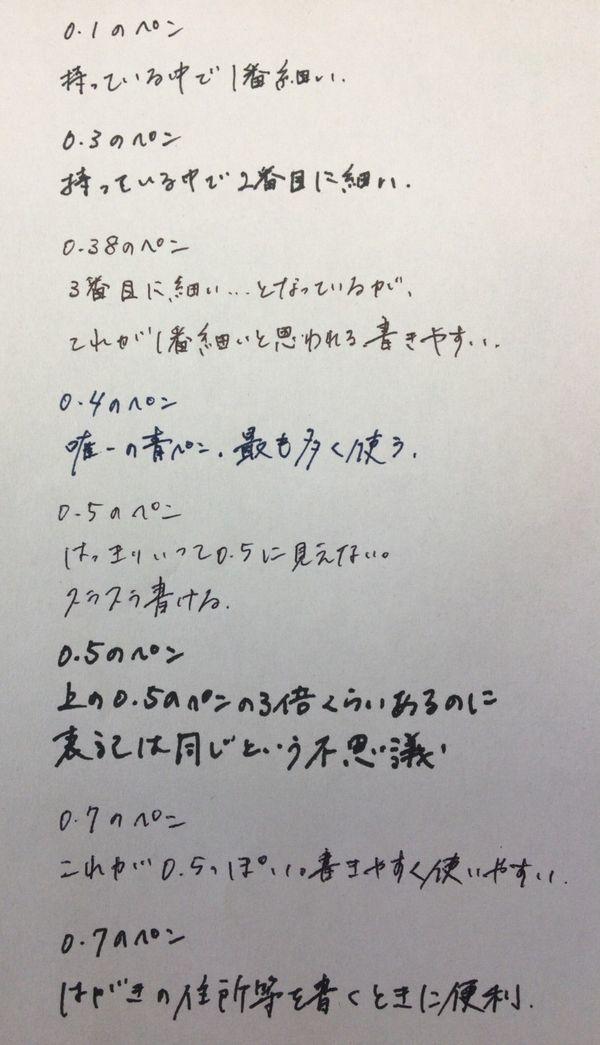 0.1のペン
持っている中で1番細い.
0.3のペン
持っている中で2番目に細い.
0.38のペン
3番目に細い...となっているが、
これが1番細いと思われる.書きやすい.
0.4のペン
唯一の青ペン.最も多く使う.
0.5のペン
はっきりいって0.5に見えない。
スラスラ書ける.
0.5のペン
上の0.5のペンの3倍くらいあるのに
表記は同じという不思議
0.7のペン
これが0.5っぽい.書きやすく使いやすい.
0.7のペン
はがきの住所等を書くときに便利.